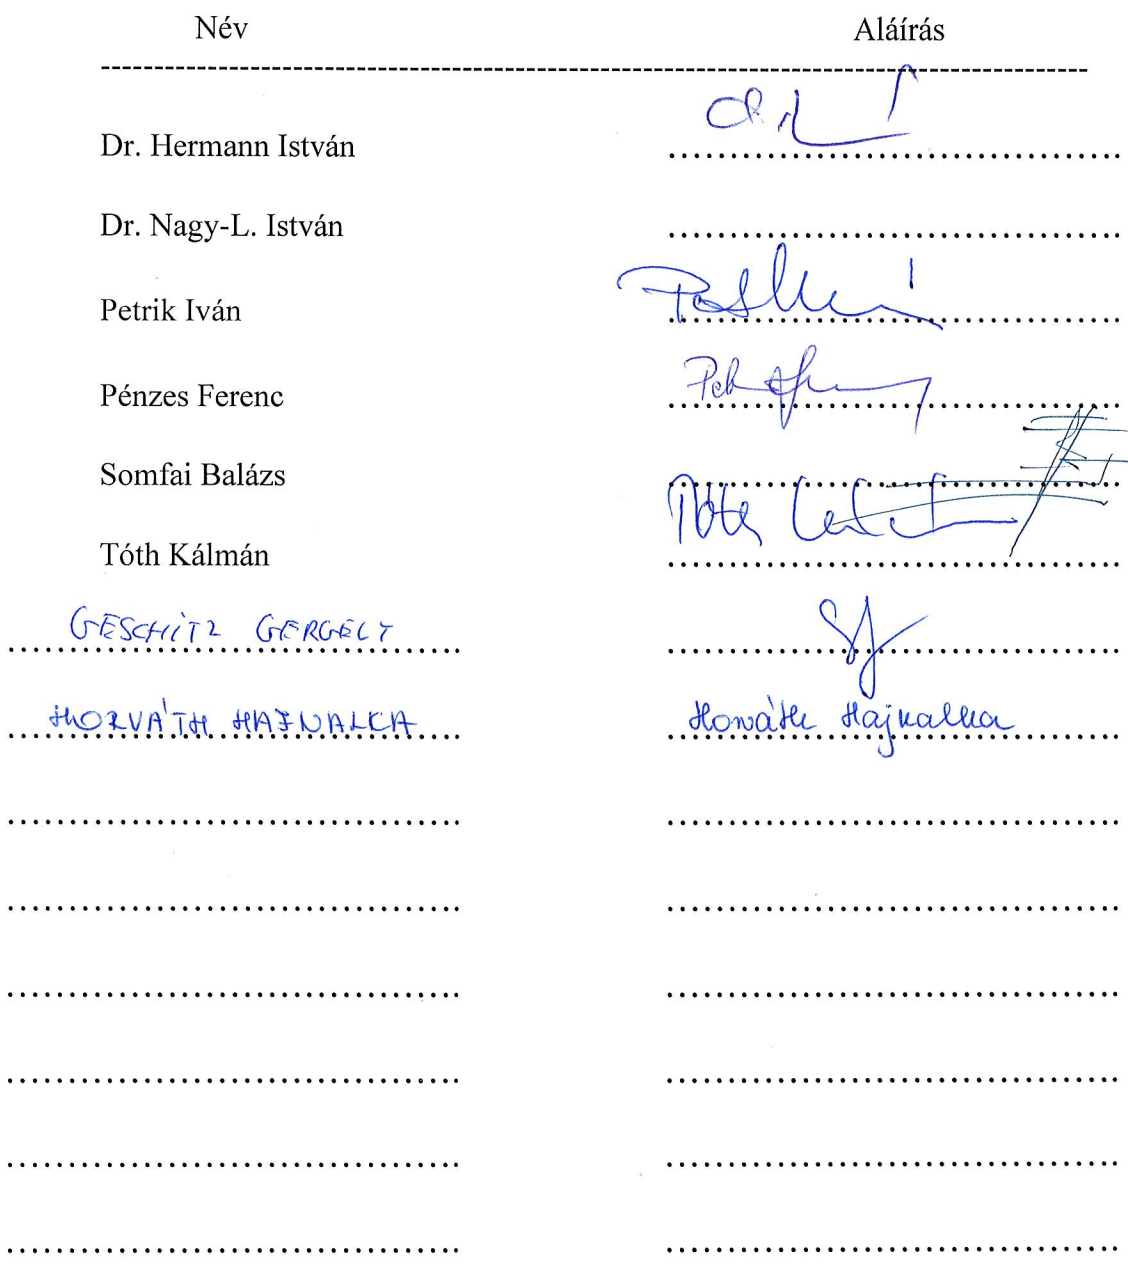 Név Aláírás
Dr. Hermann István
Dr. Nagy-L. István
Petrik Iván
Pénzes Ferenc
Somfai Balázs
Tóth Kálmán
GESCHITZ GERGELY
HORVÁTH HAJNALKA Horváth Hajnalka